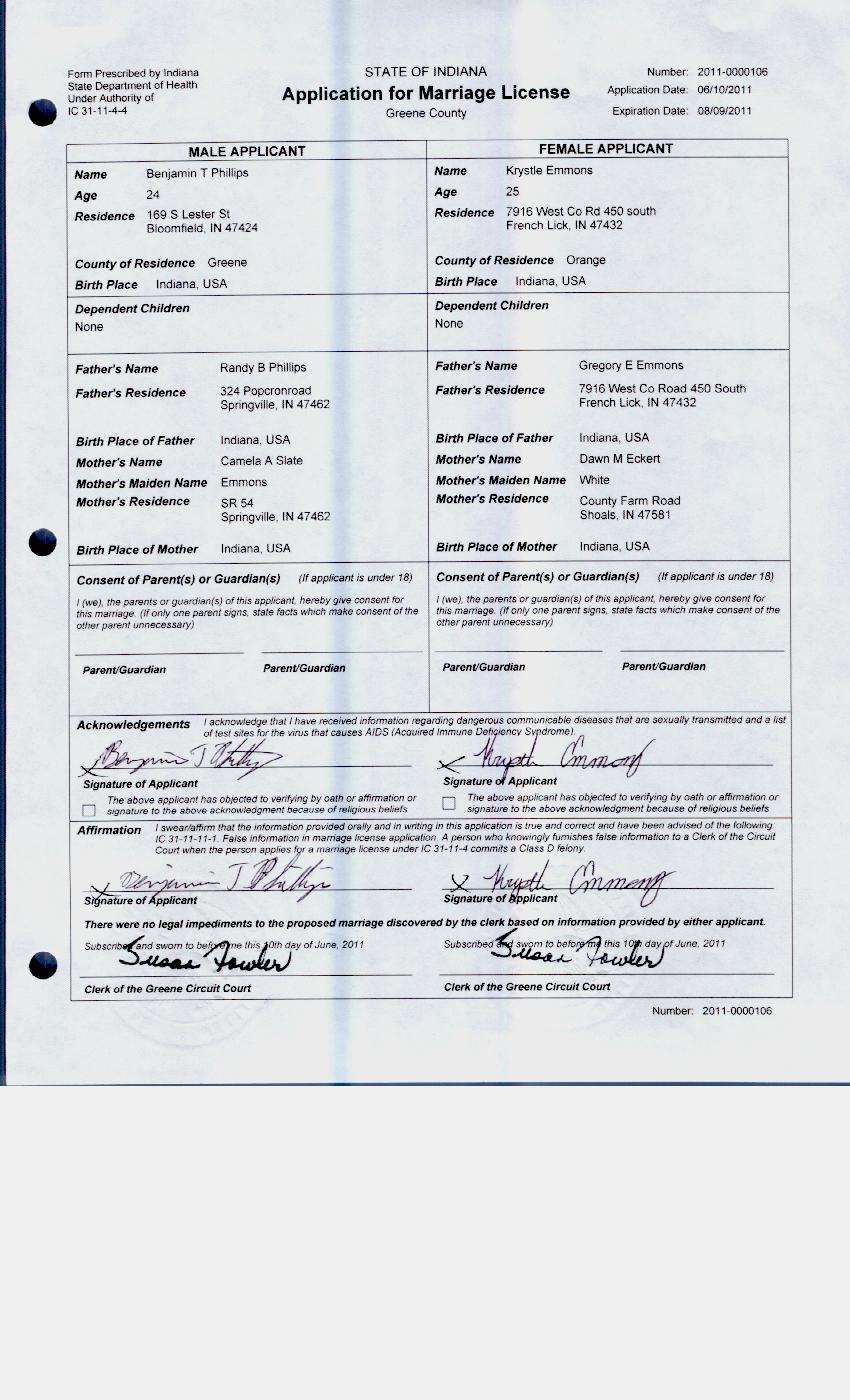 Form Prescribed by Indiana
State Department of Health
Under Authority of
IC 31-11-4-4
STATE OF INDIANA
Application for Marriage License
Greene County
Number: 2011-0000106
Application Date: 06/10/2011
Expiration Date: 08/09/2011
MALE APPLICANT
Name Benjamin T Phillips
Age 24
Residence 169 S Lester St
Bloomfield, IN 47424
County of Residence Greene
Birth Place Indiana, USA
Dependent Children
None
Father's Name Randy B Phillips
Father's Residence 324 Popcronroad
Springville, IN 47462
Birth Place of Father Indiana, USA
Mother's Name Camela A Slate
Mother's Maiden Name Emmons
Mother's Residence SR 54
Springville, IN 47462
Birth Place of Mother Indiana, USA
Consent of Parent(s) or Guardian(s) (If applicant is under 18)
I (we), the parents or guardian(s) of this applicant, hereby give consent for
this marriage. (If only one parent signs, state facts which make consent of the
other parent unnecessary)
Parent/Guardian Parent/Guardian
FEMALE APPLICANT
Name Krystle Emmons
Age 25
Residence 7916 West Co Rd 450 south
French Lick, IN 47432
County of Residence Orange
Birth Place Indiana, USA
Dependent Children
None
Father's Name Gregory E Emmons
Father's Residence 7916 West Co Road 450 South
French Lick, IN 47432
Birth Place of Father Indiana, USA
Mother's Name Dawn M Eckert
Mother's Maiden Name White
Mother's Residence County Farm Road
Shoals, IN 47581
Birth Place of Mother Indiana, USA
Consent of Parent(s) or Guardian(s) (If applicant is under 18)
I (we), the parents or guardian(s) of this applicant, hereby give consent for
this marriage. (If only one parent signs, state facts which make consent of the
other parent unnecessary)
Parent/Guardian Parent/Guardian
Acknowledgements I acknowledge that I have received information regarding dangerous communicable diseases that are sexually transmitted and a list
of test sites for the virus that causes AIDS (Acquired Immune Deficiency Syndrome).
x Benjamin T Phillips x Krystle Emmons
Signature of Applicant Signature of Applicant
The above applicant has objected to verifying by oath or affirmation or
signature to the above acknowledgment because of religious beliefs
The above applicant has objected to verifying by oath or affirmation or
signature to the above acknowledgment because of religious beliefs
Affirmation I swear/affirm that the information provided orally and in writing in this application is true and correct and have been advised of the following:
IC 31-11-11-1. False information in marriage license application. A person who knowingly furnishes false information to a Clerk of the Circuit
Court when the person applies for a marriage license under IC 31-11-4 commits a Class D felony.
x Benjamin T Phillips x Krystle Emmons
Signature of Applicant Signature of Applicant
There were no legal impediments to the proposed marriage discovered by the clerk based on information provided by either applicant.
Subscribed and sworn to before me this 10th day of June, 2011 Subscribed and sworn to before me this 10th day of June, 2011
Susan Fowler Susan Fowler
Clerk of the Greene Circuit Court Clerk of the Greene Circuit Court
Number: 2011-0000106